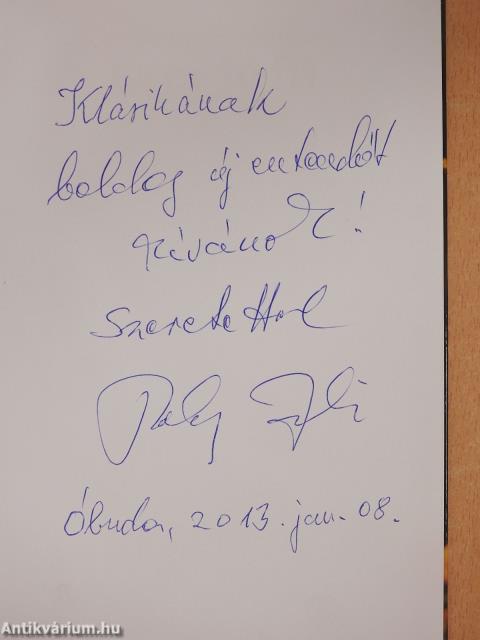 Klárikának
boldog új esztendőt
kívánok!
Szeretettel
Óbuda, 2013. jan. 08.
Antikvárium.hu